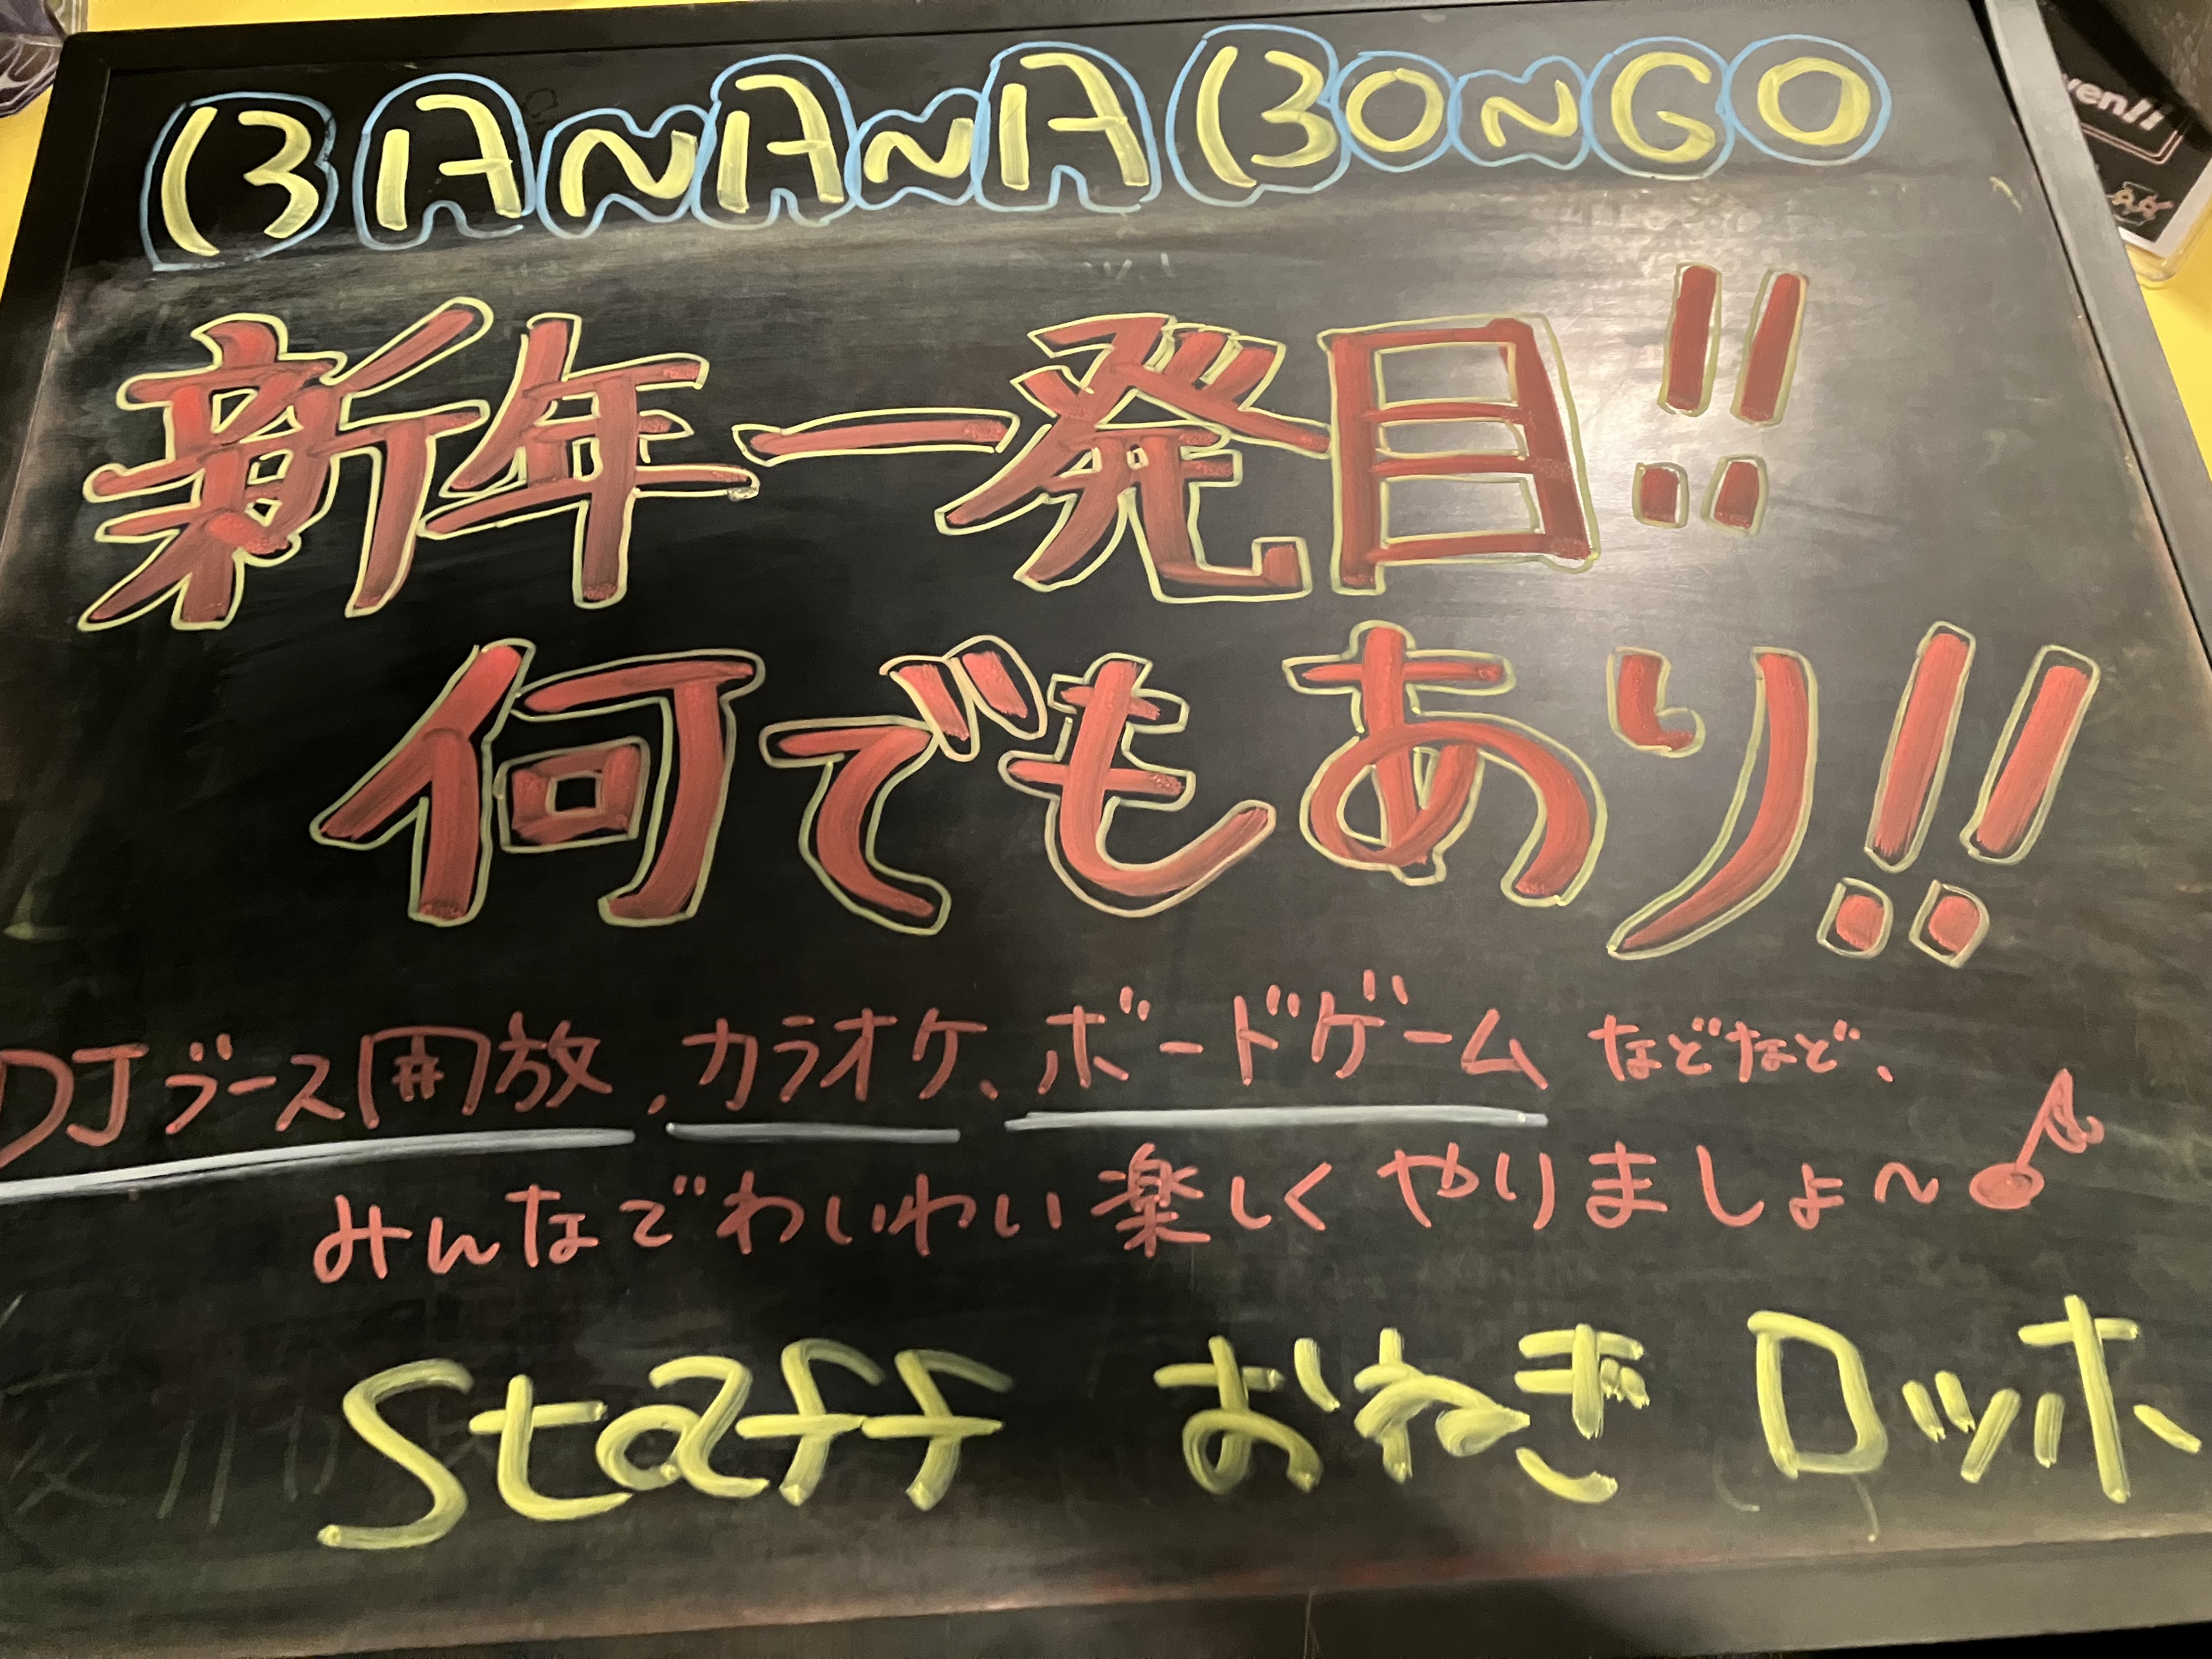 BANANA BONGO
新年一発目!!
何でもあり!!
DJブース開放、カラオケ、ボードゲームなどなど、
みんなでわいわい楽しくやりましょ〜♪
Staff おねぎ ロッホ